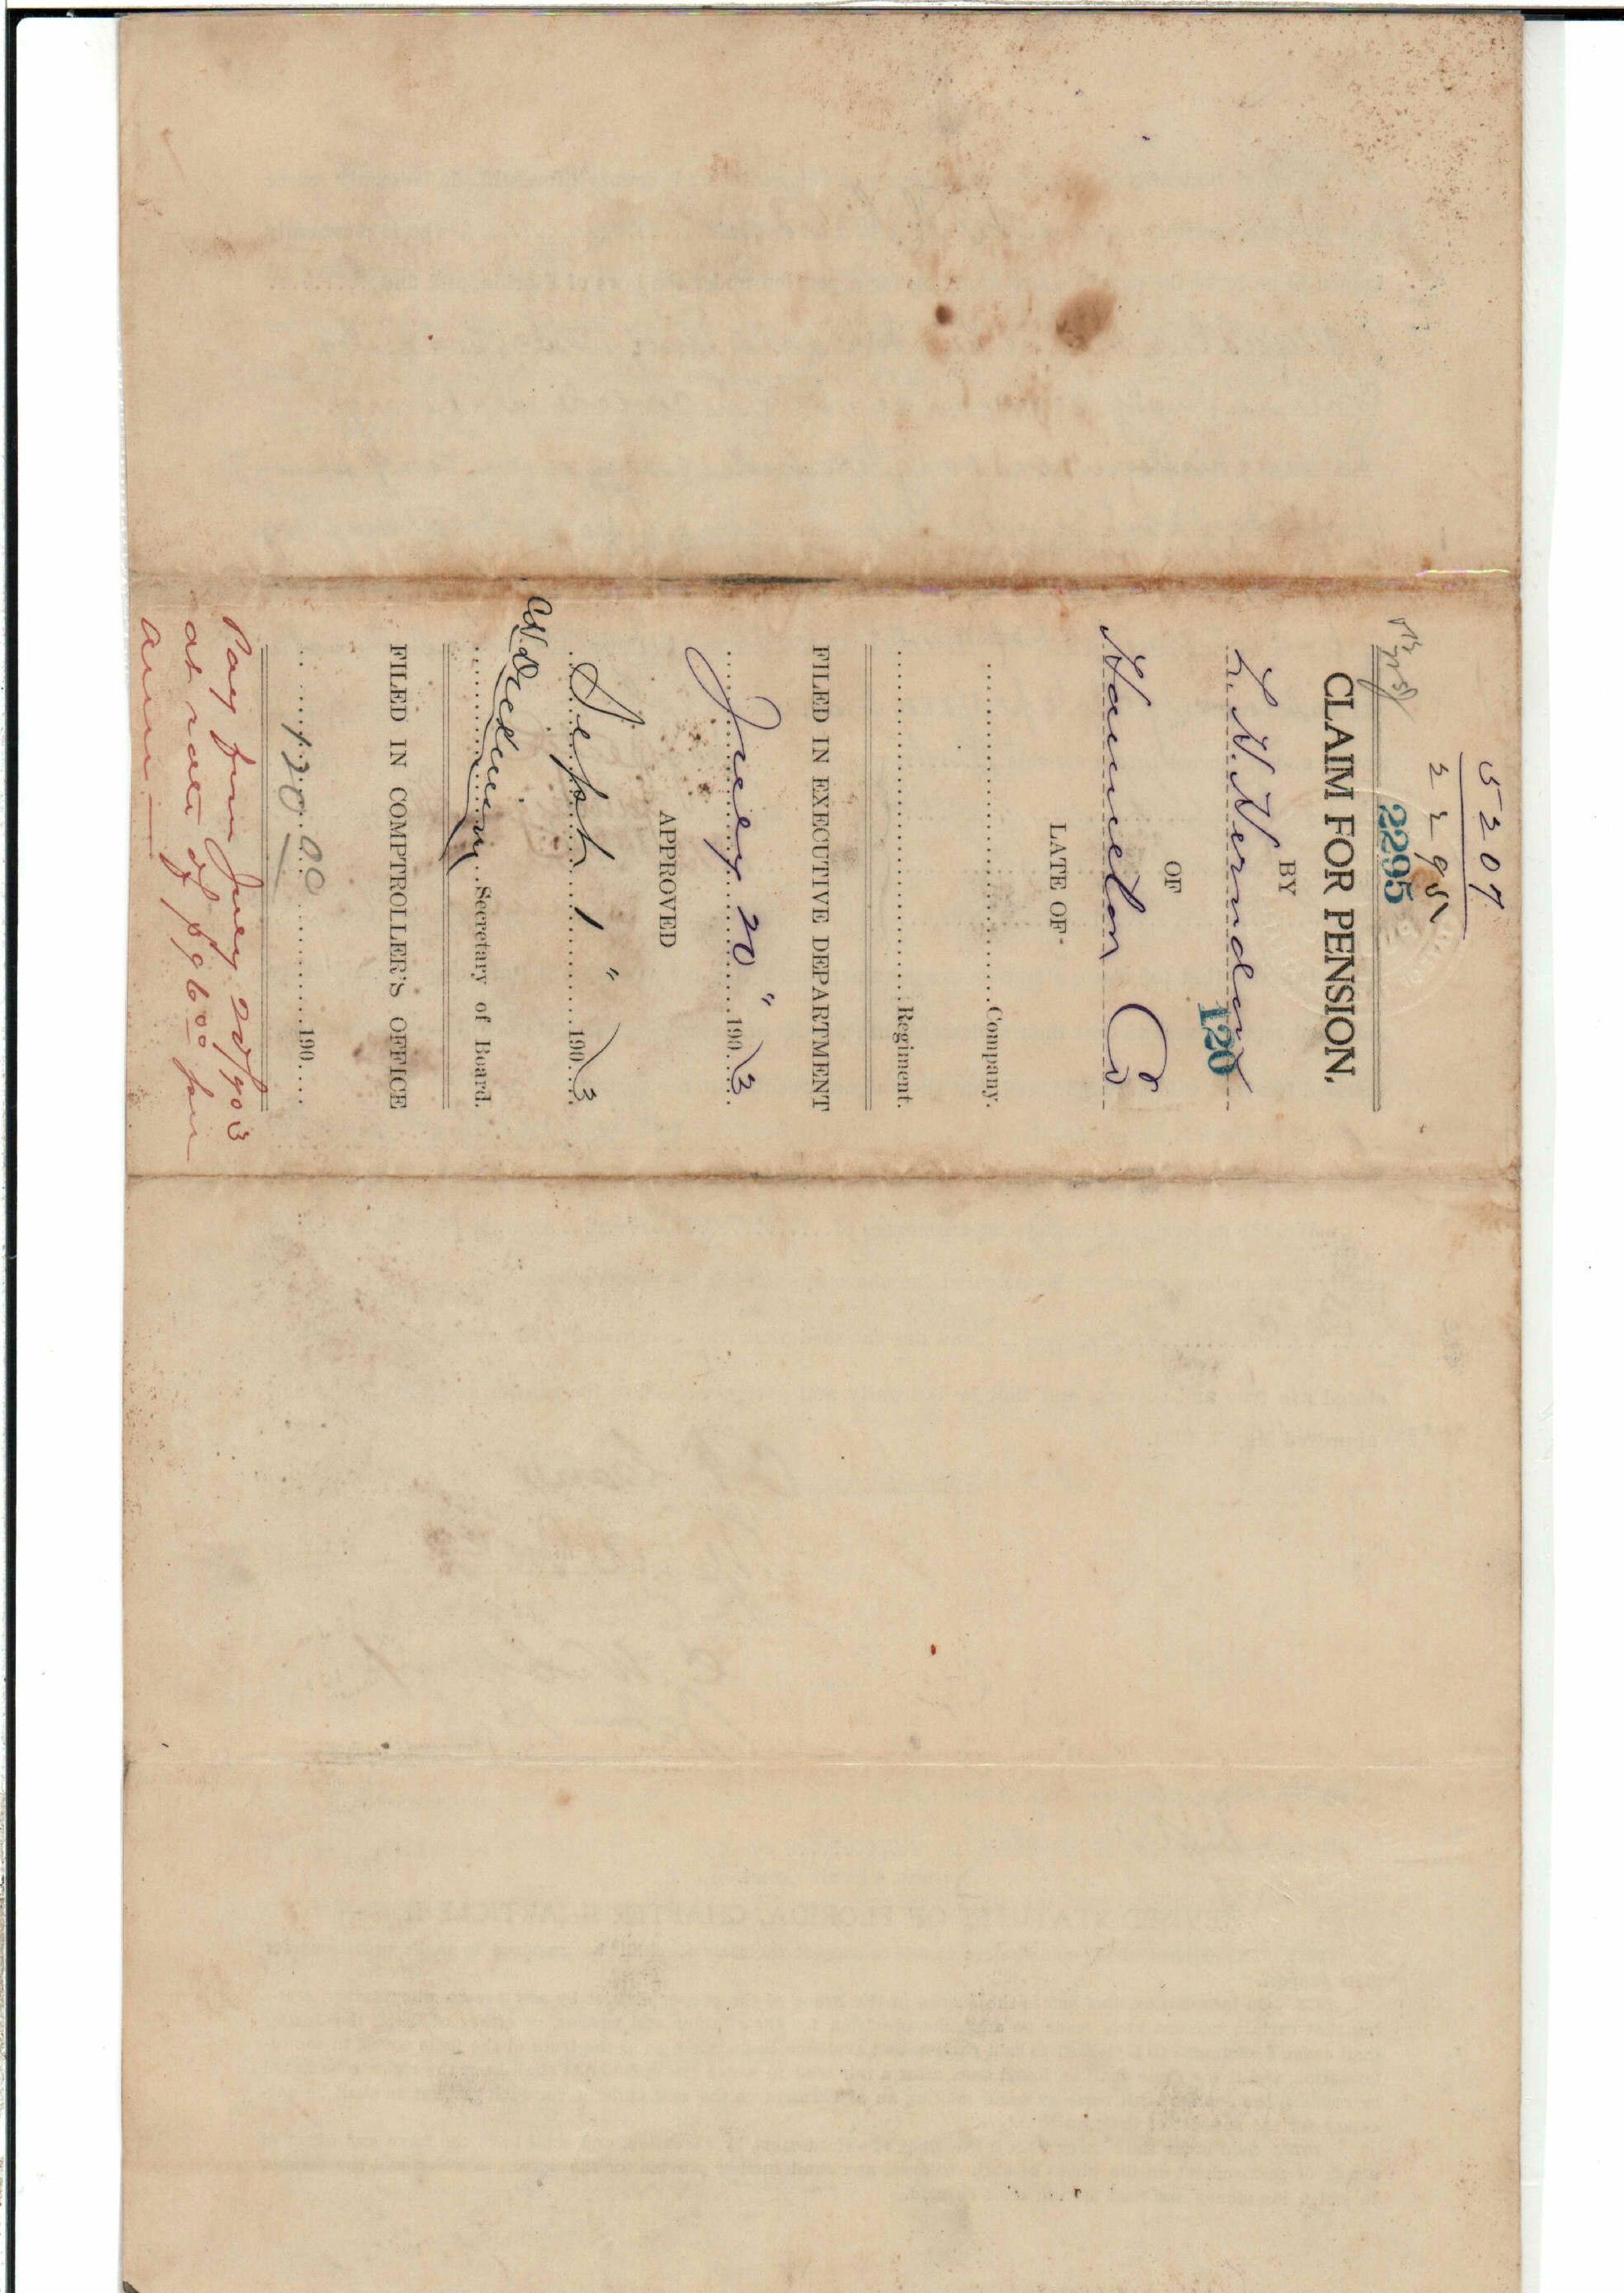 5207
2295
2295
CLAIM FOR PENSION,
BY
L. H. Herndon
120
OF
Hamilton Co
LATE OF
Company.
Regiment.
FILED IN EXECUTIVE DEPARTMENT
July 20" 1903
APPROVED
Sept 1" 1903
Secretary of Board.
FILED IN COMPTROLLER'S OFFICE
120.00 190
Pay from July 20/903
at rate of $96.00 per
annum